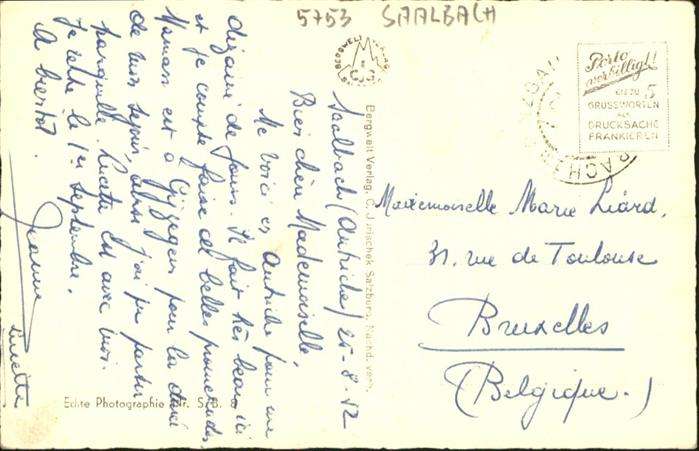 5753 SAALBACH
Saalbach (Autriche) 25-8-52
Bien chère Mademoiselle,
Me voici en Autriche pour une
dizaine de jours. Il fait très beau ici
et je compte faire de belles promenades.
Maman est à Gijzegem pour la durée
de mon séjour, alors j'ai pu partir
tranquille. Lucette est avec moi.
Je rentre le 1er septembre.
A bientôt.
Jeanne
Lucette
Bergwelt Verlag, C. Jurischek Salzburg, Nachd. verb.
Echte Photographie Nr. S/B. 8
Porto
verbilligt!
BIS ZU 5
GRUSSWORTEN
ALS
DRUCKSACHE
FRANKIEREN
Mademoiselle Marie Liard,
31, rue de Toulouse
Bruxelles
(Belgique.)